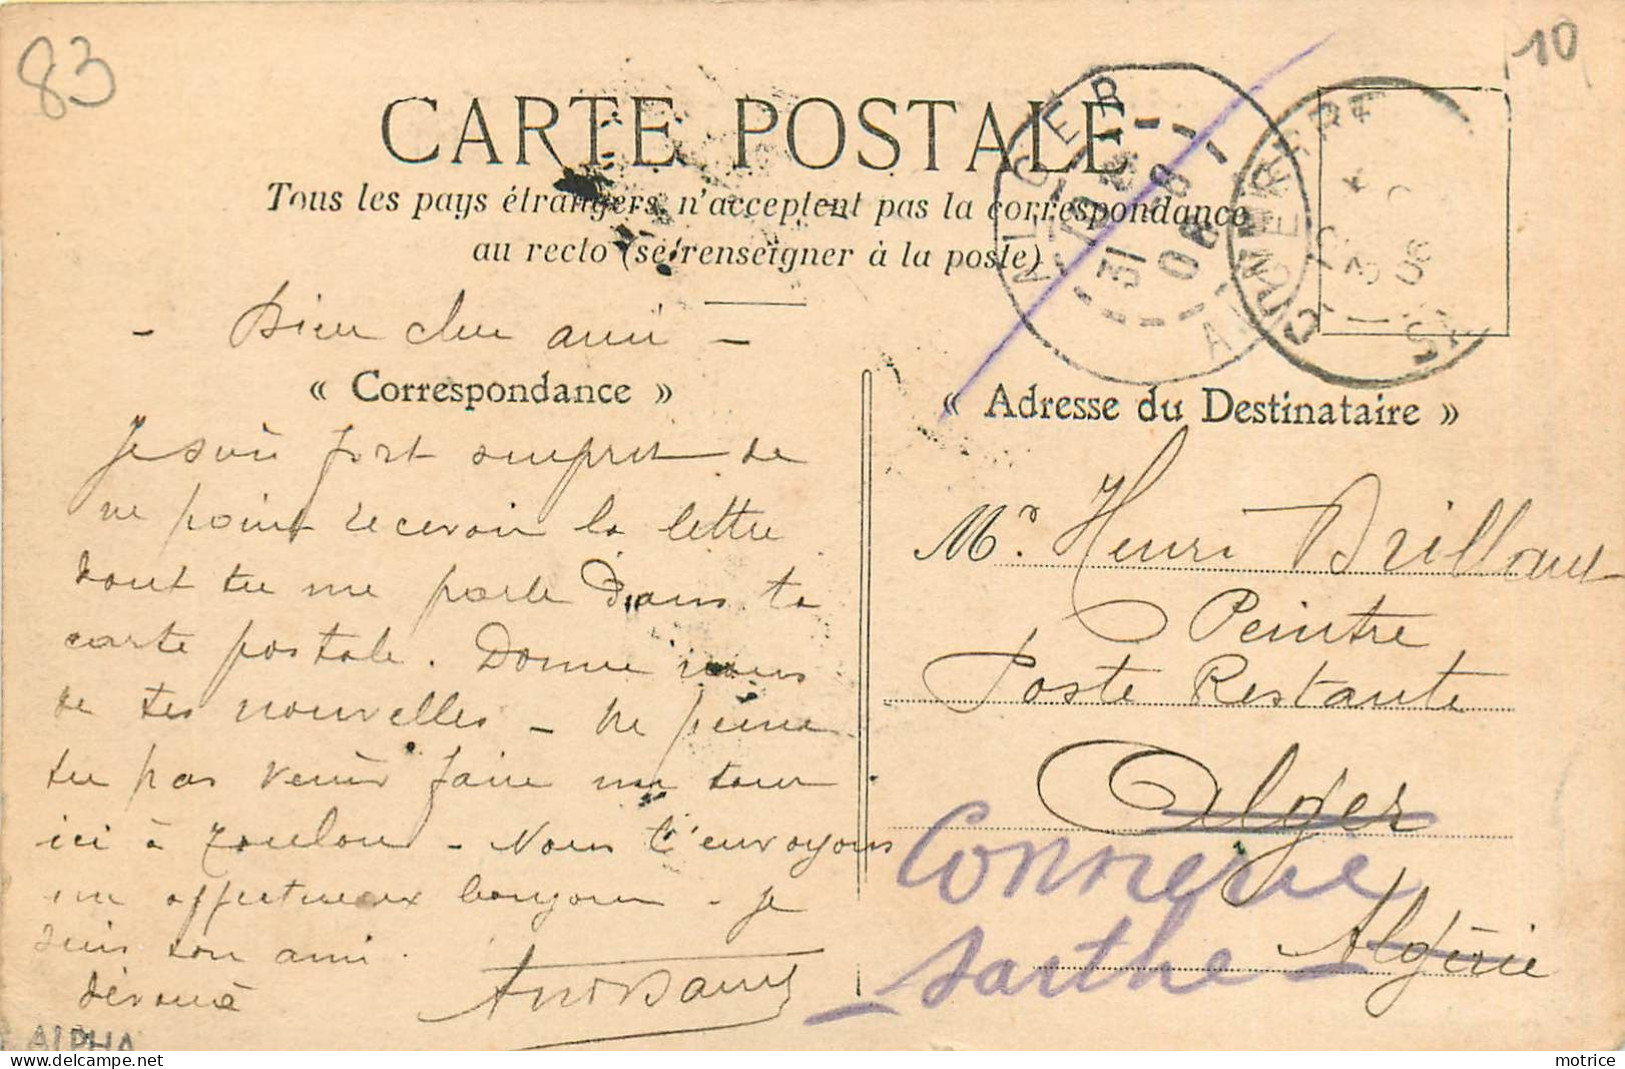 83
10
CARTE POSTALE
Tous les pays étrangers n'acceptent pas la correspondance
au recto (se renseigner à la poste)
ALGER
31 - 8
06
CONNERRÉ
06
- Bien cher ami -
« Correspondance »
Je suis fort surpris de
ne point recevoir la lettre
dont tu me parle dans ta
carte postale. Donne nous
de tes nouvelles - ne peux
tu pas venir faire un tour
ici à Toulon - Nous t'envoyons
un affectueux bonjour - je
suis ton ami.
dévoué
« Adresse du Destinataire »
Mr. Henri Brillant
Peintre
Poste Restante
Alger
Connerré
Algérie
Sarthe
ALPHA
motrice